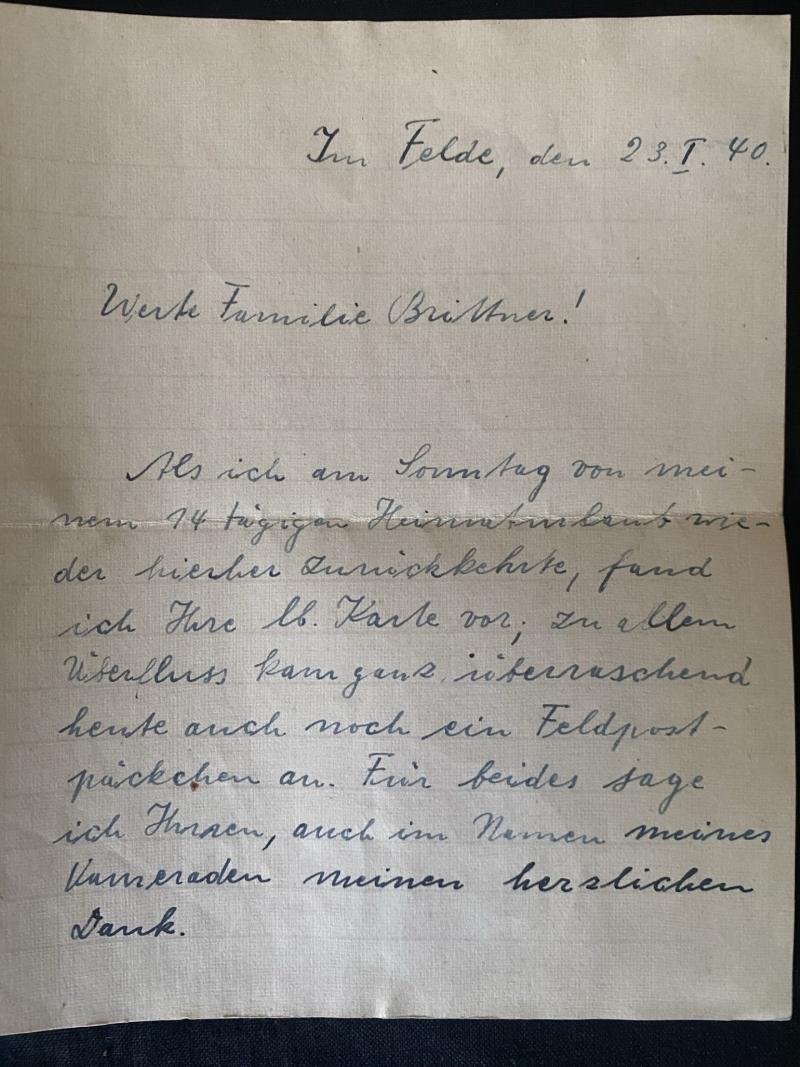 Im Felde, den 23.I.40.
Werte Familie Brittner!
Als ich am Sonntag von mei-
nem 14 tägigen Heimaturlaub wie-
der hierher zurückkehrte, fand
ich Ihre lb. Karte vor; zu allem
Überfluss kam ganz überraschend
heute auch noch ein Feldpost-
päckchen an. Für beides sage
ich Ihnen, auch im Namen meines
Kameraden meinen herzlichen
Dank.